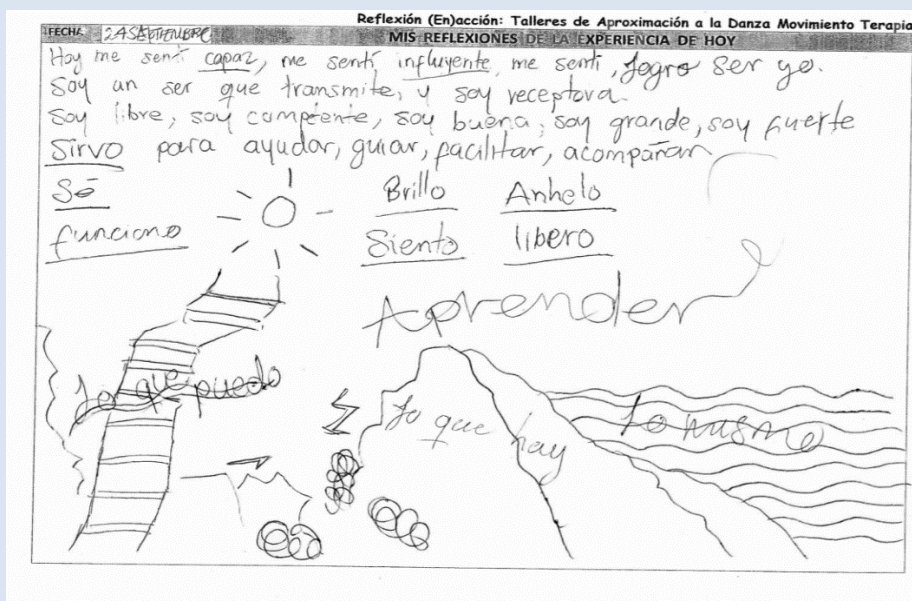 Reflexión (En)acción: Talleres de Aproximación a la Danza Movimiento Terapia
FECHA 24 SEPTIEMBRE
MIS REFLEXIONES DE LA EXPERIENCIA DE HOY
Hoy me sentí capaz, me sentí influyente, me sentí, logro ser yo.
Soy un ser que transmite, y soy receptora.
Soy libre, soy competente, soy buena, soy grande, soy fuerte
Sirvo para ayudar, guiar, facilitar, acompañar
Sé Brillo Anhelo
funciono Siento libero
Aprender
Lo que puedo
Lo que hay
Lo mismo